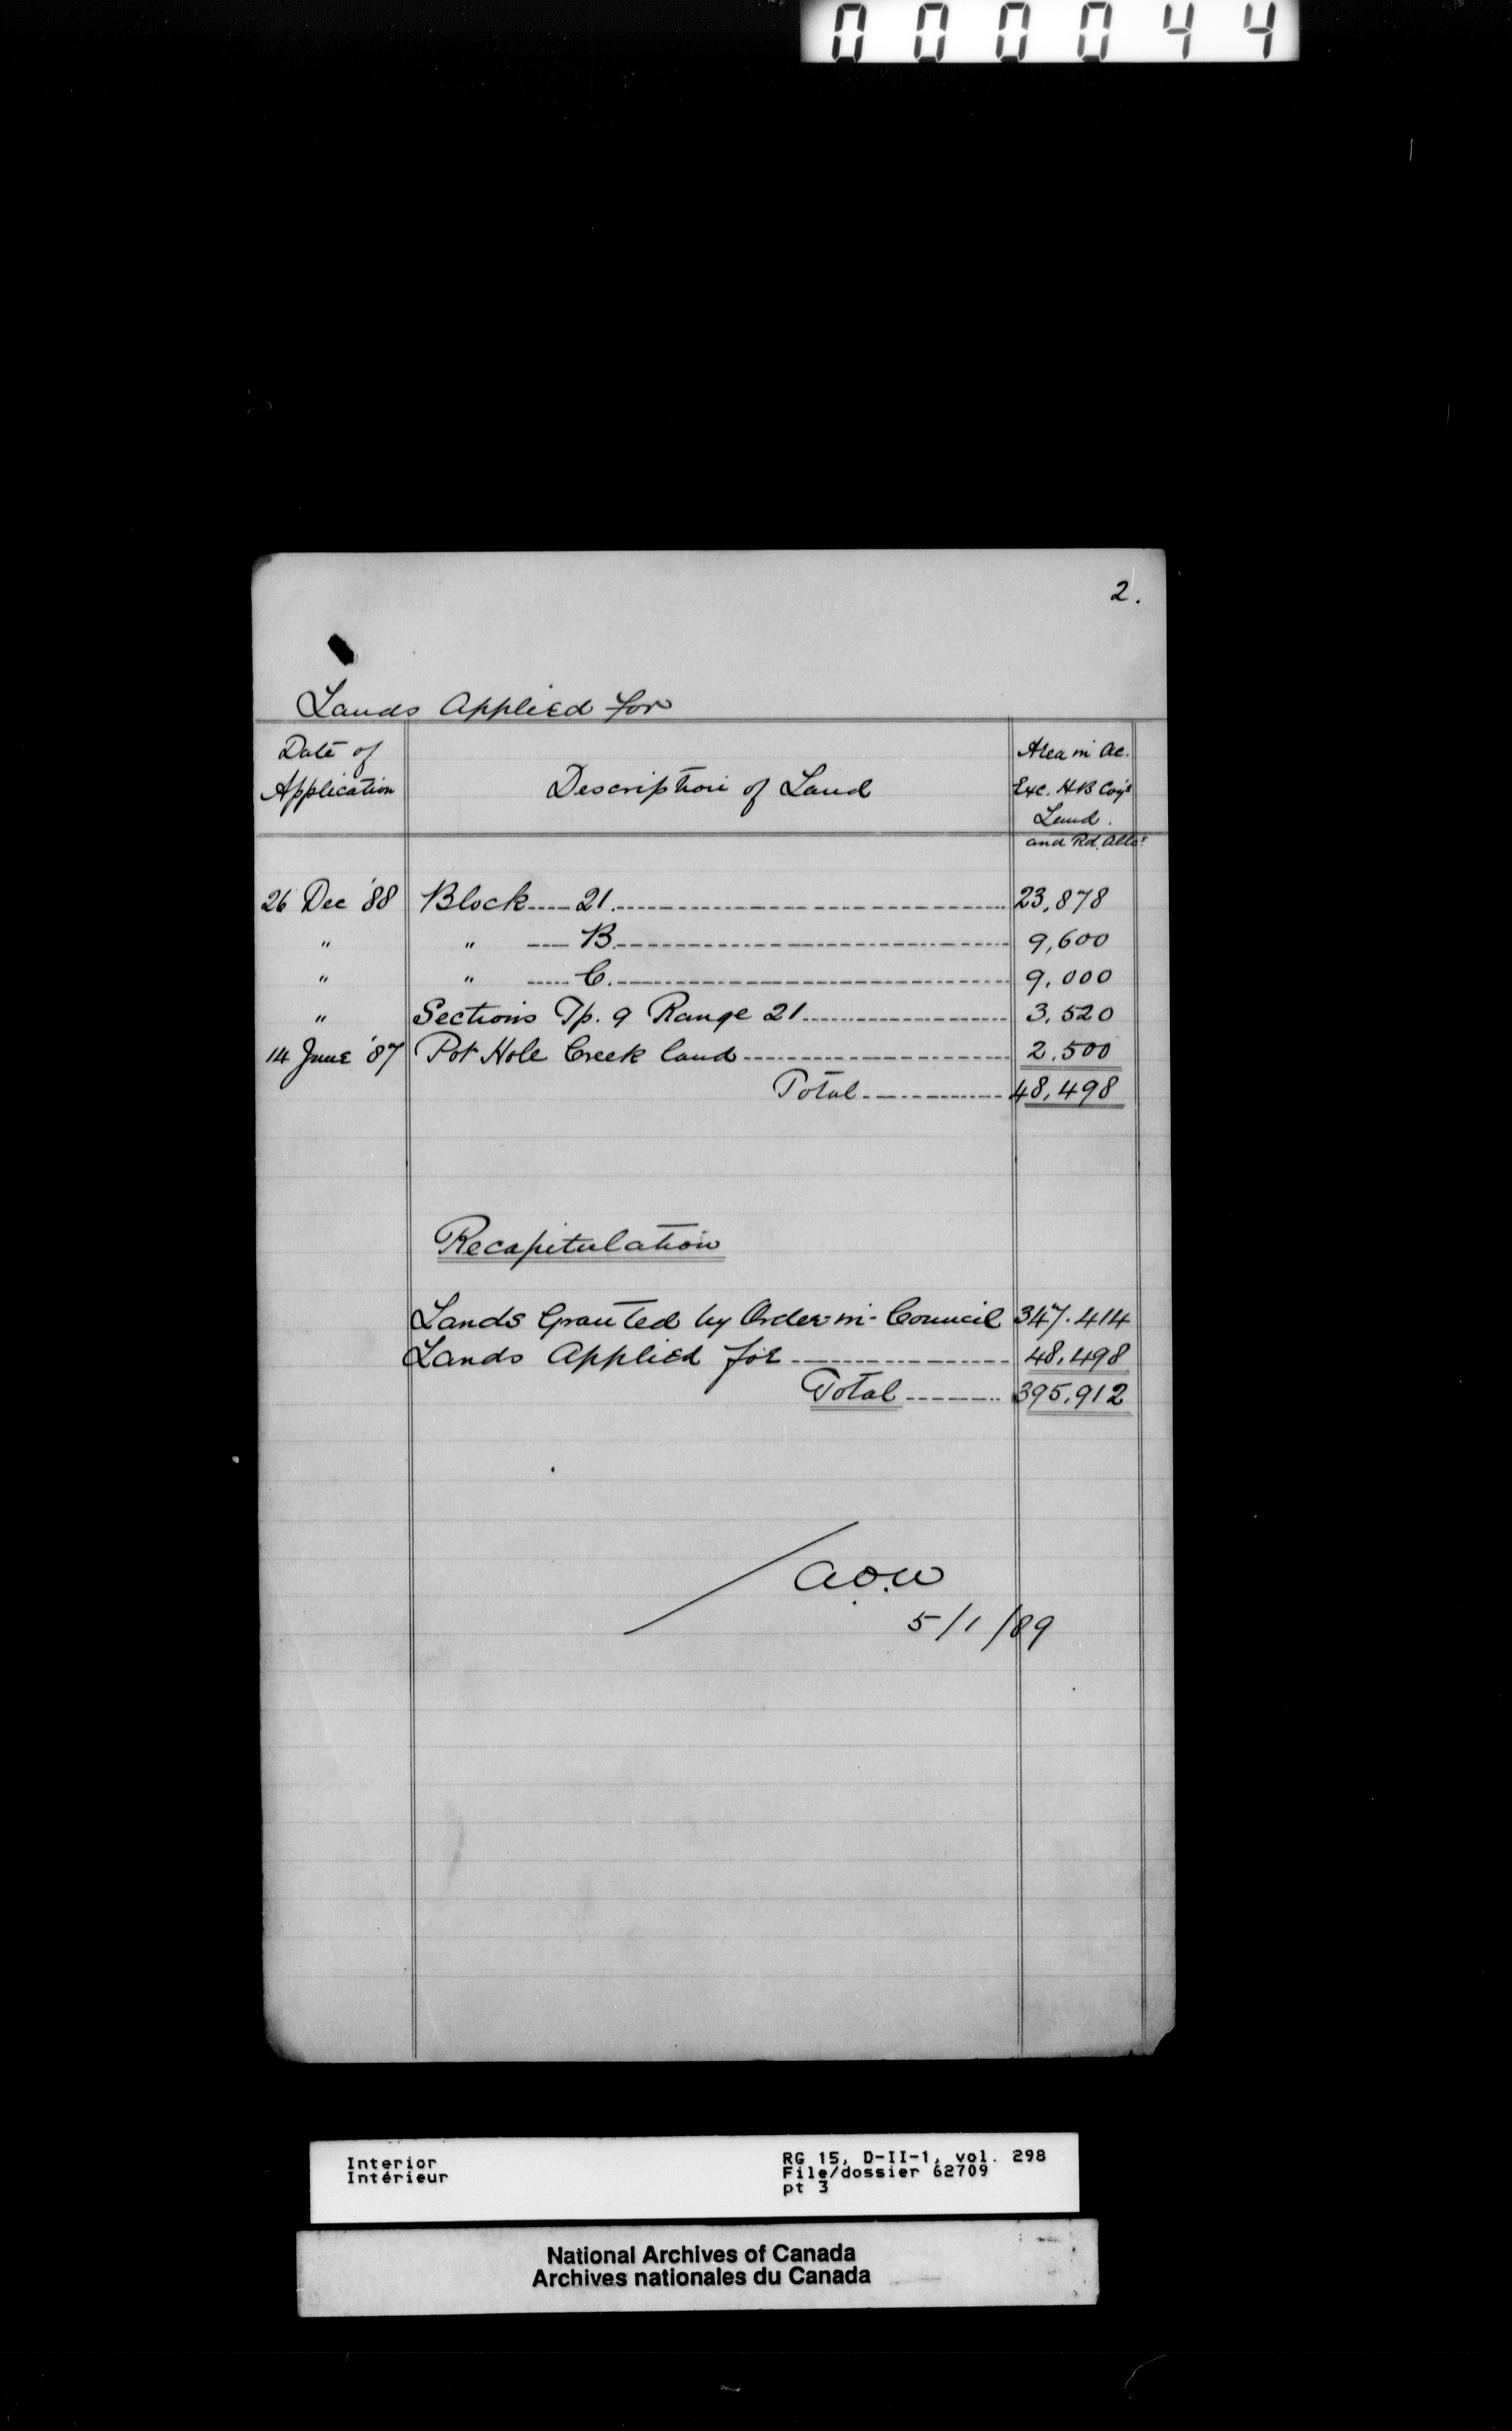 000044
2.
Lands Applied for
Date of Application
Description of Land
Area in Ac.
Exc. H.B Coy's
Land.
and Rd. Allces
26 Dec '88 Block ---- 21 ---- 23,878
" " ---- B. ---- 9,600
" " ---- C. ---- 9,000
" Sections Tp. 9 Range 21 ---- 3,520
14 June '87 Pot Hole Creek land ---- 2,500
Total ---- 48,498
Recapitulation
Lands Granted by Order-in-Council 347.414
Lands Applied for ---- 48,498
Total ---- 395,912
5/1/89
Interior
Intérieur
RG 15, D-II-1, vol. 298
File/dossier 62709
pt 3
National Archives of Canada
Archives nationales du Canada